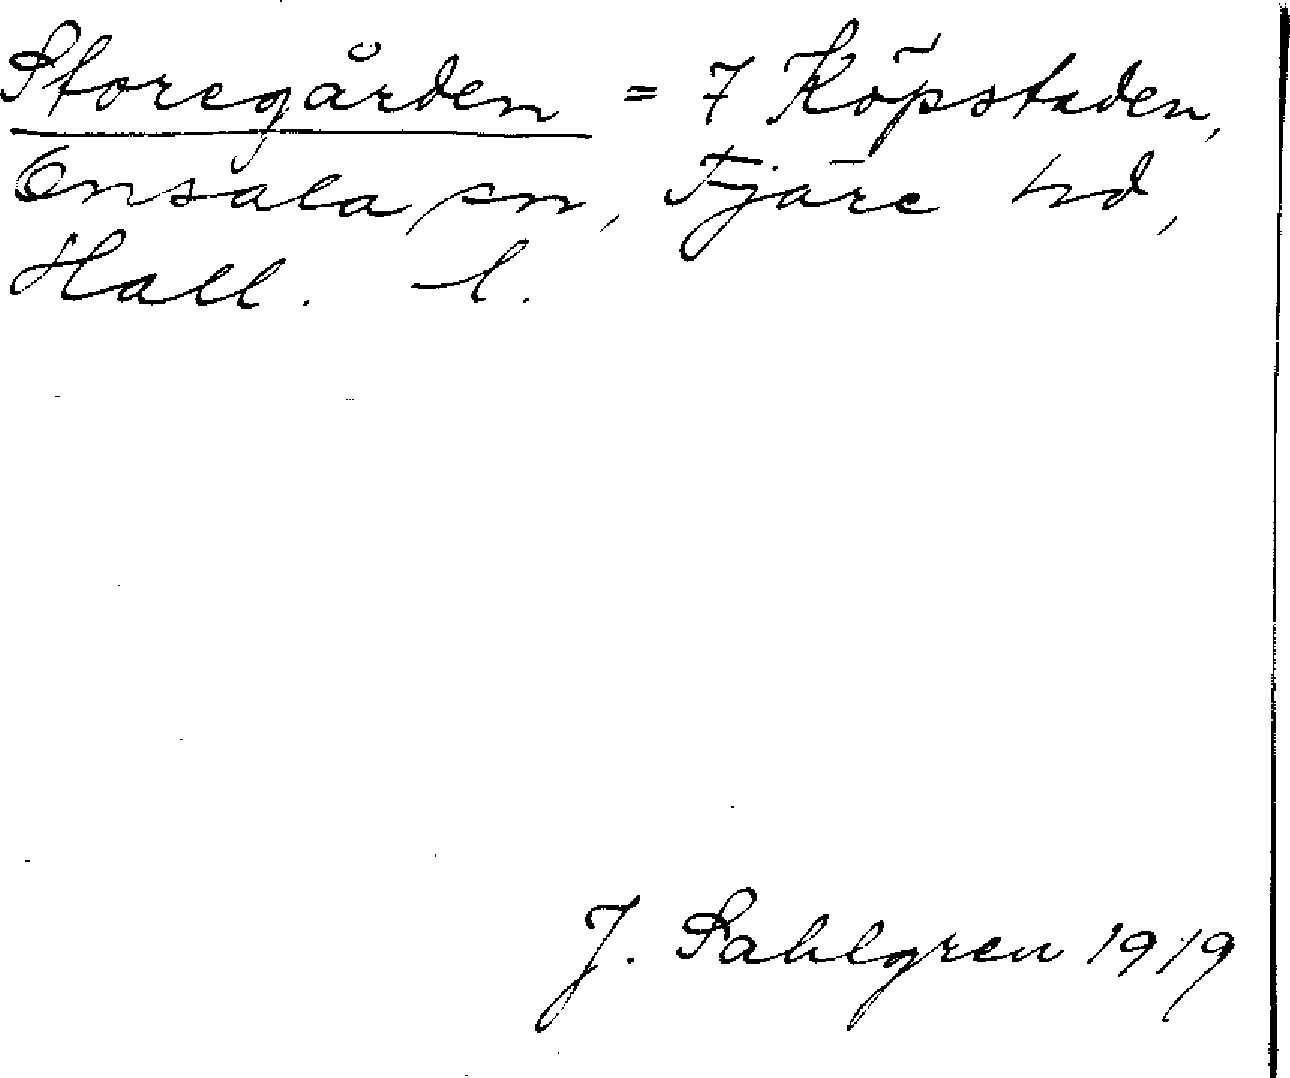 Storegården = 7 Köpstaden,
Onsala sn, Fjäre hd,
Hall. l.
J. Sahlgren 1919